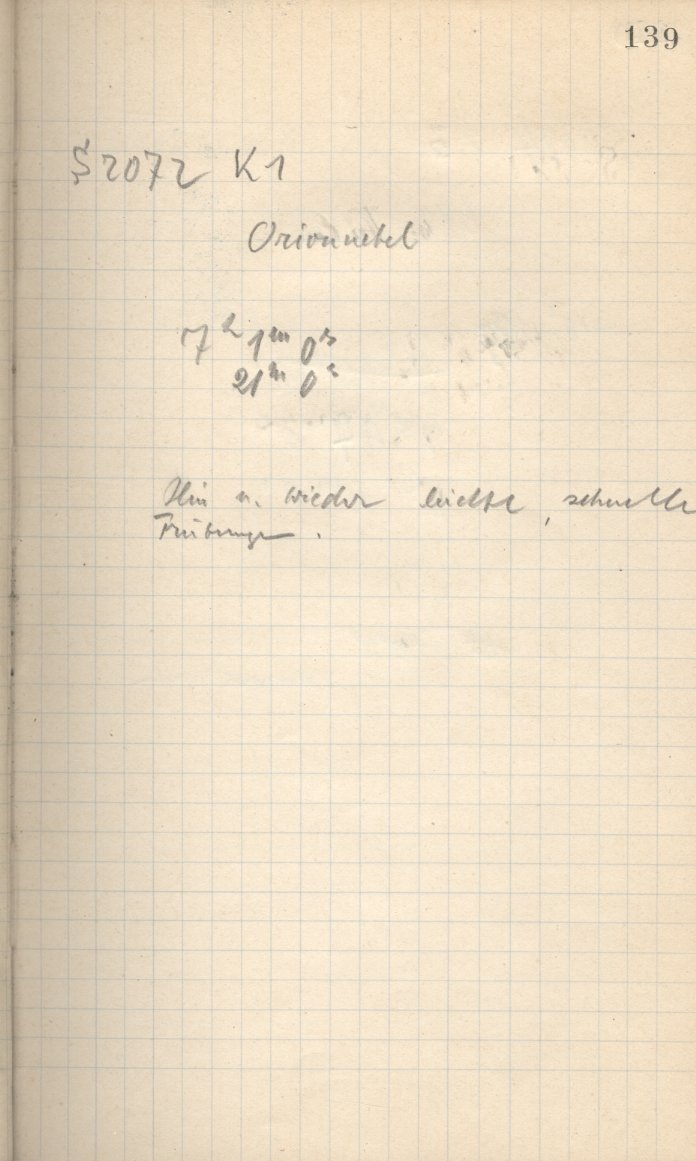 139
S 2072 K1
Orionnebel
7h 1m 0s
21m 0s
Hin u. wieder leichte, schnelle
Trübungen.